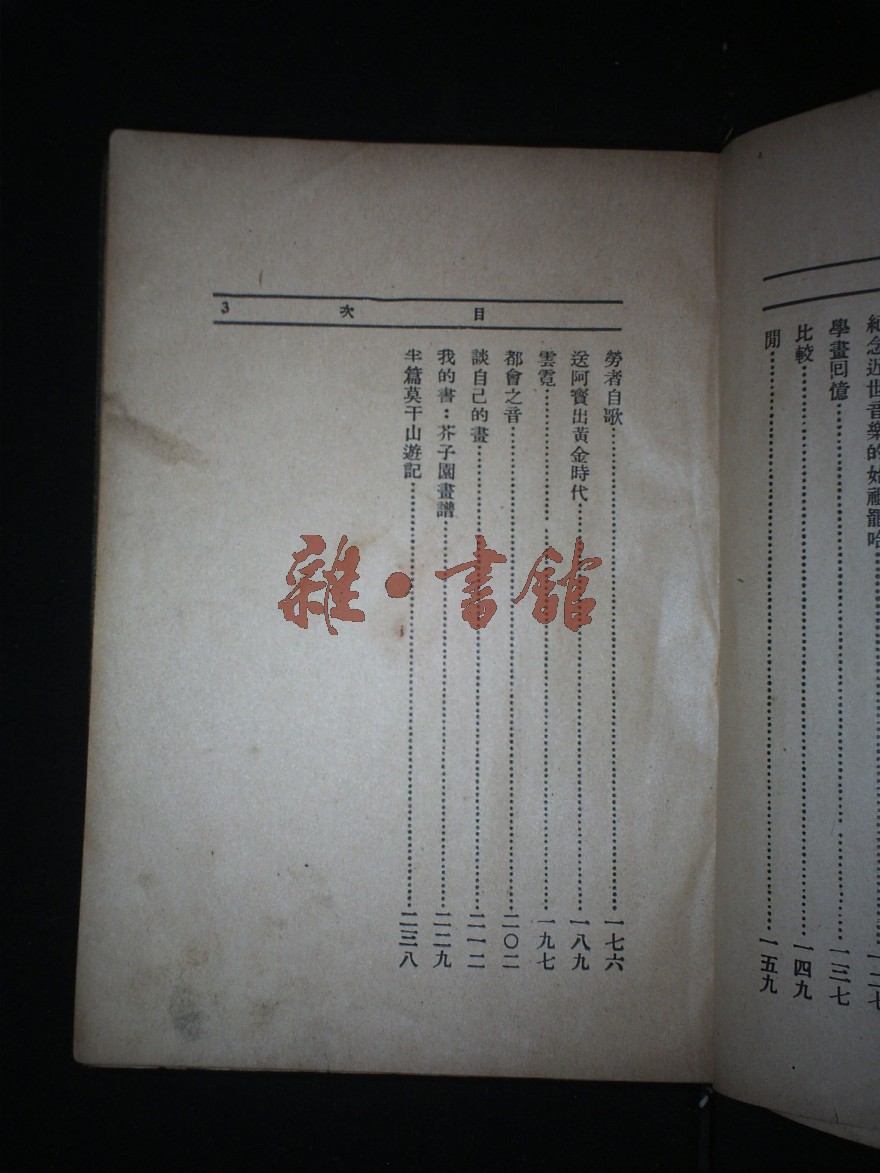 紀念近世音樂的始祖罷哈⋯⋯一二七
學畫回憶⋯⋯一三七
比較⋯⋯一四九
閒⋯⋯一五九
目 次 3
勞者自歌⋯⋯一七六
送阿寶出黃金時代⋯⋯一八九
雲霓⋯⋯一九七
都會之音⋯⋯二〇二
談自己的畫⋯⋯二一二
我的書：芥子園畫譜⋯⋯二二九
半篇莫干山遊記⋯⋯二三八
雜·書館